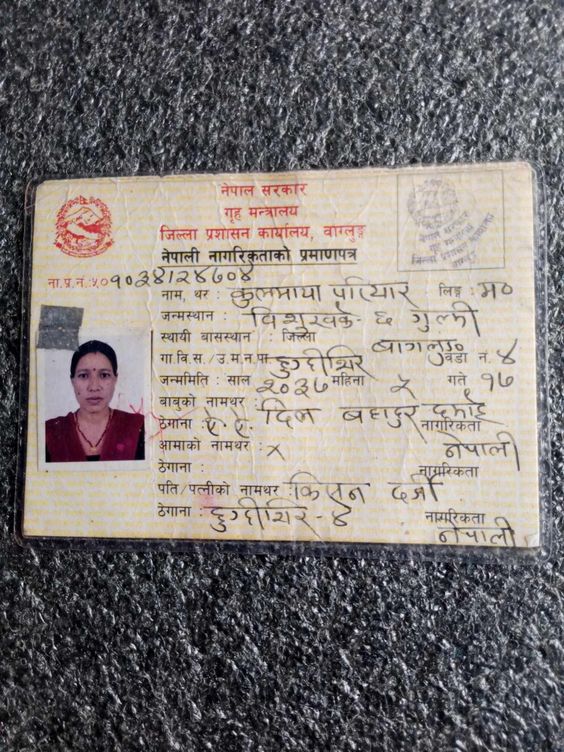 नेपाल सरकार
गृह मन्त्रालय
जिल्ला प्रशासन कार्यालय, वाग्लुङ्ग
नेपाली नागरिकताको प्रमाणपत्र
ना.प्र.न.:५०१०३४/२४७०४
नाम, थर : कुलमाया परियार लिङ्ग : म०
जन्मस्थान : विशुखर्क- ६ गुल्मी
स्थायी बासस्थान : जिल्ला बागलुङ
गा.वि.स. / उ.म.न.पा. हुग्दीशिर वडा नं. ४
जन्ममिति : साल २०३७ महिना २ गते १७
बाबुको नामथर : दिल बहादुर दमाई
ठेगाना : ऐ. ऐ. नागरिकता
आमाको नामथर : x नेपाली
ठेगाना : नागरिकता
पति/पत्नीको नामथर : किसन दर्जी
ठेगाना हुग्दीशिर-४ नागरिकता
नेपाली